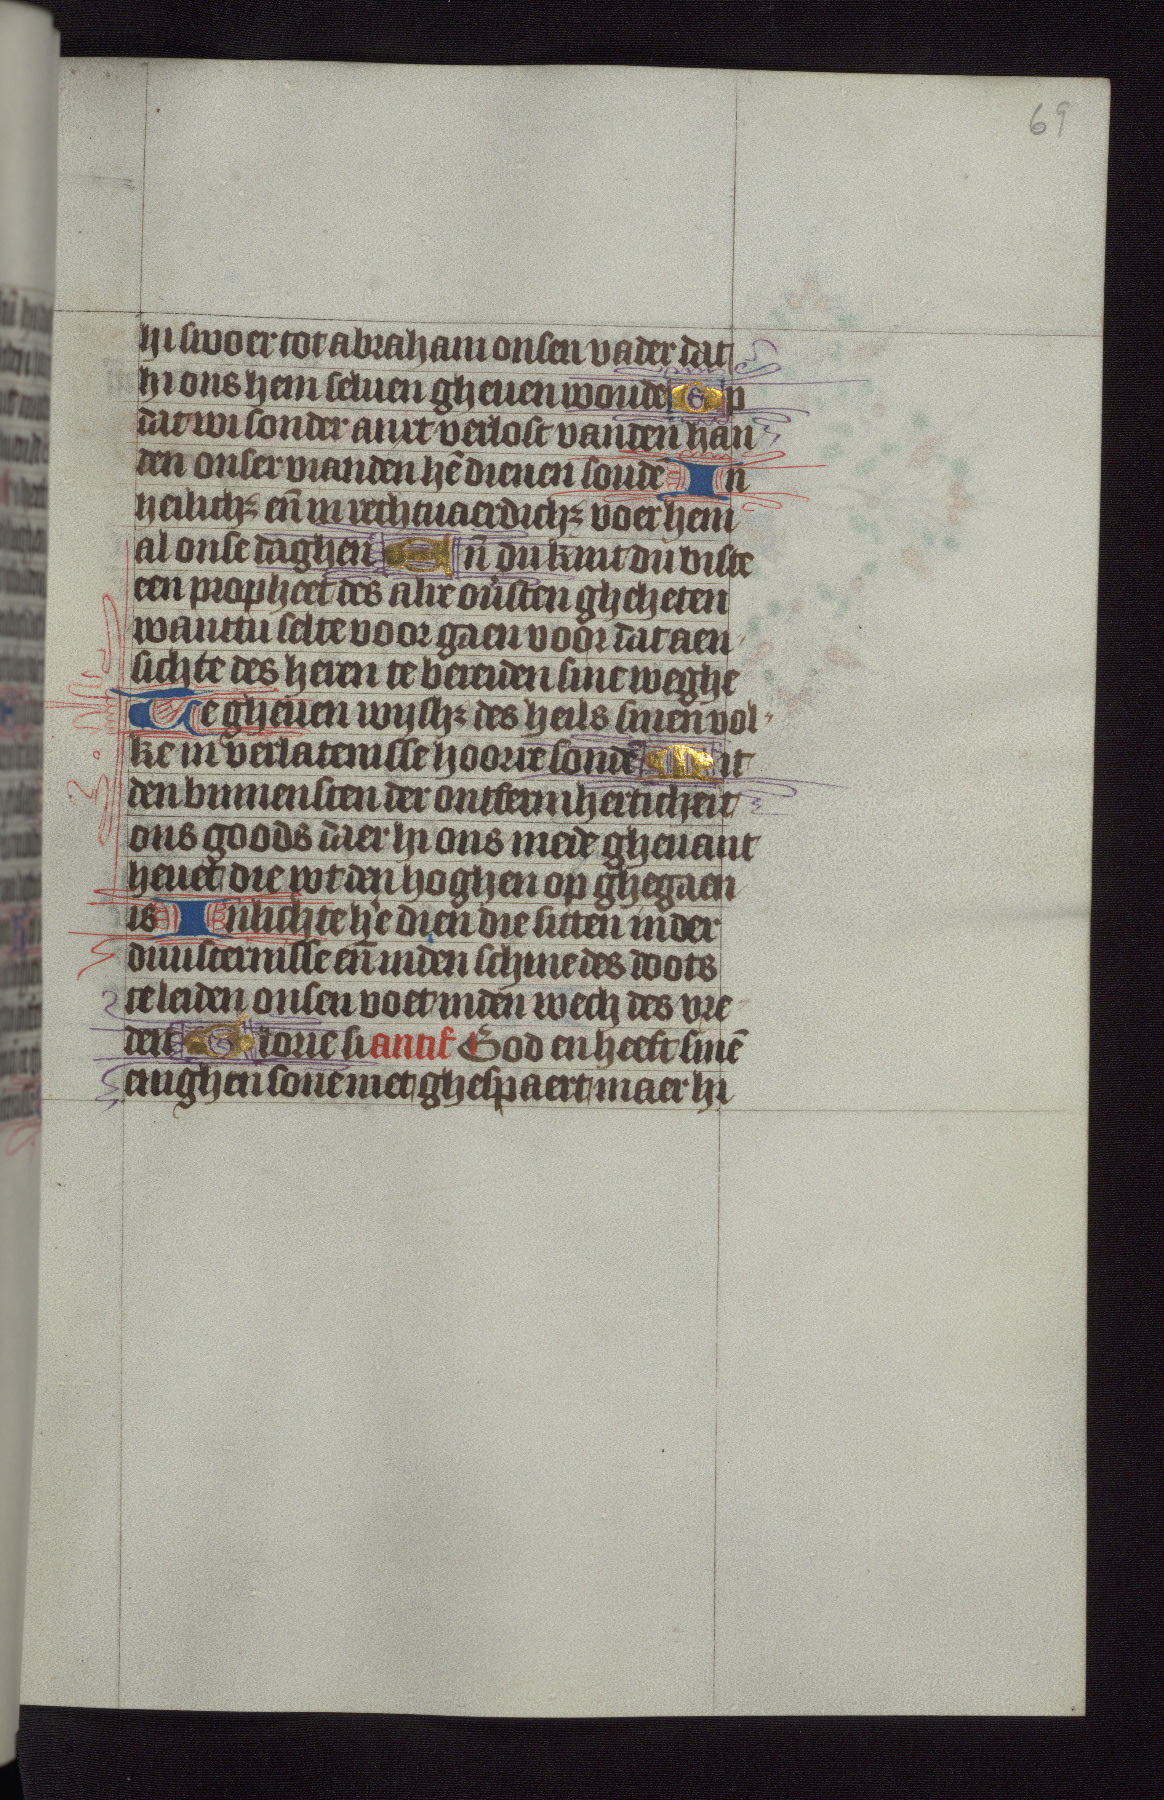 69
hi swoer tot abraham onsen vader dat
hi ons hem seluen gheuen woude Op
dat wi sonder anxt verlost vanden han
den onser vianden hē dienen soude In
heilichꝫ en̄ in rechtuaerdichꝫ voer hem
al onse daghen En̄ du kint du biste
een propheet des alre ouersten gheheten
wanttu selte voor gaen voor dat aen
sichte des heren te bereiden sine weghe
Te gheuen wijshꝫ des heils sinen vol
ke in verlatenisse hoorre sonde Mit
den binnensten der ontfermherticheit
ons goods daer hi ons mede gheuant
heuet die wt den hoghen op ghegaen
is Inlichte hē dien die sitten in der
duusternisse en̄ inden schine des doots
te leiden onsen voet inden wech des vre
den Glorie si antif God en heeft sinē
eighen sone niet ghespaert maer hi